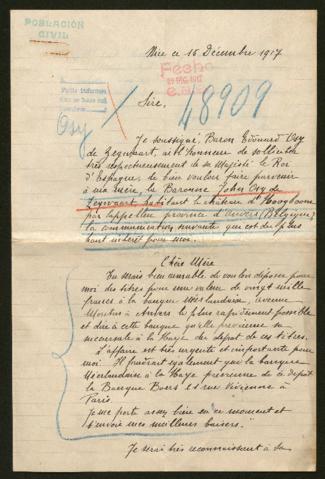 POBLACIÓN
CIVIL
Nice ce 16 Décembre 1917
Fecho
DIC. 1917
48909
Osy
Sire,
Je soussigné, Baron Edouard Osy
de Zegwaart, ai l'honneur de solliciter
très respectueusement de sa Majesté le Roi
d'Espagne, de bien vouloir faire parvenir
à ma mère, la Baronne John Osy de
Zegwaart habitant le château d'Hooghboom
par Cappellen province d'Anvers (Belgique)
la communication suivante qui est du plus
haut intérêt pour moi.
Chère Mère
Tu serais bien aimable de vouloir déposer pour
moi des titres pour une valeur de vingt mille
francs à la banque Néerlandaise, avenue
à Anvers le plus rapidement possible
et dire à cette banque qu'elle prévienne sa
succursale à la Haye du dépôt de ces titres.
L'affaire est très urgente et importante pour
moi. Il faudrait également que la banque
Néerlandaise à la Haye prévienne de ce dépôt
la Banque 8 rue Vivienne à
Paris.
Je me porte assez bien en ce moment et
t'envoie mes meilleurs baisers."
Je serai très reconnaissant à Sa